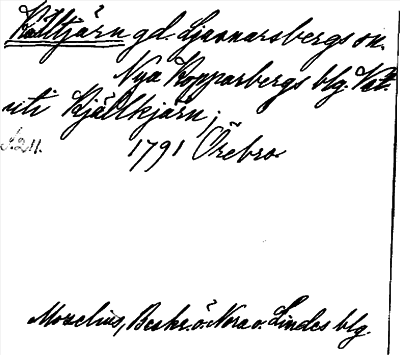 Källtjärn gd. Ljusnarsbergs sn.
Nya Kopparbergs blg. Vst.
uti Kjällkjärn;
S. 211. 1791 Örebro
Morelius, Beskr. ö. Nora o. Lindes blg.